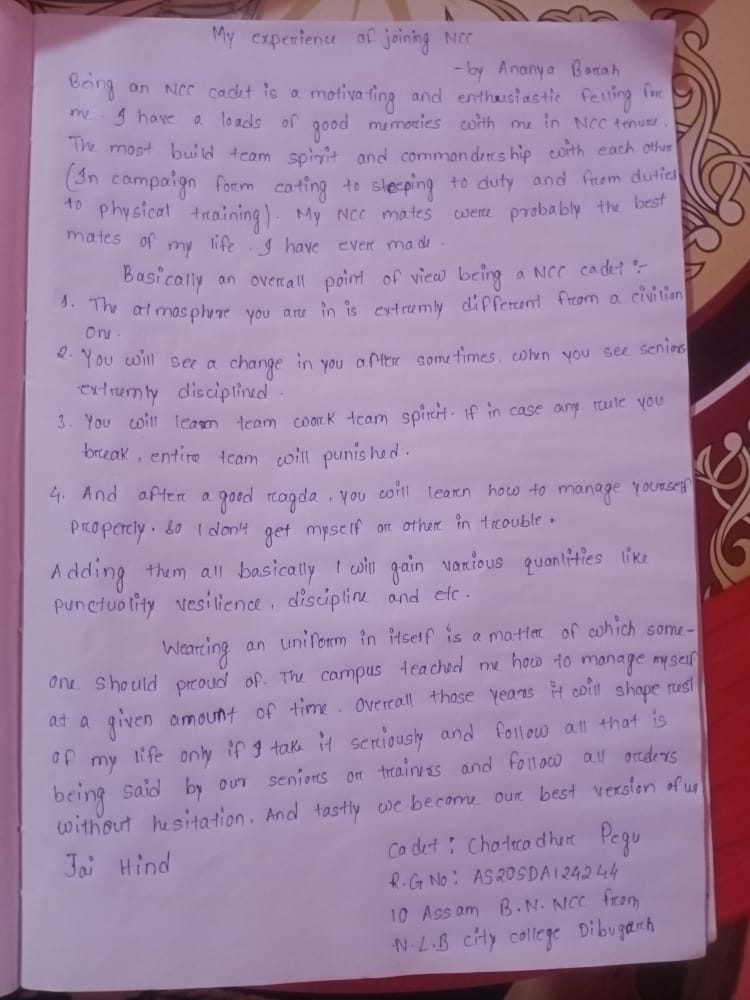 My experience of joining NCC
- by Ananya Borah
Being an NCC cadet is a motivating and enthusiastic felling for
me. I have a loads of good memories with me in NCC tenure.
The most build team spirit and commandership with each other
(In campaign form eating to sleeping to duty and from duties
to physical training). My NCC mates were probably the best
mates of my life. I have ever made.
Basically an overall point of view being a NCC cadet :-
1. The atmosphere you are in is extrumly different from a civilion
one.
2. You will see a change in you after sometimes. when you see seniors
extrumly disciplined.
3. You will learn team woork team spirit. if in case any rule you
break, entire team will punished.
4. And after a good ragda, you will learn how to manage yourself
properly. So I don't get myself or other in trouble.
Adding them all basically I will gain various quantities like
punctuality vesilience, discipline and etc.
Wearing an uniform in itself is a matter of which some-
one should proud of. The campus teached me how to manage myself
at a given amount of time. Overall those years it will shape rest
of my life only if I take it seriously and follow all that is
being said by our seniors or trainers and follow all orders
without hesitation. And tastly we become our best version of us
Jai Hind
Cadet : Chatradher Pegu
R.G No: AS20SDA124244
10 Assam B.N. NCC from
N.L.B city college Dibugarh